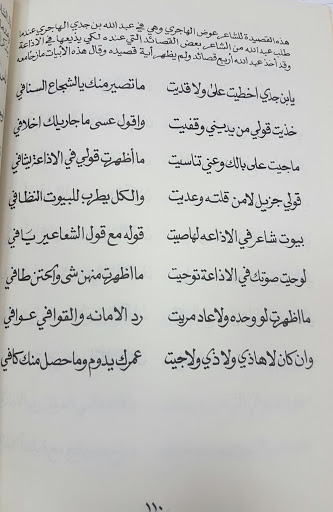 هذه القصيدة للشاعر عوض الهاجري وهي في عبد الله بن جدي الهاجري عندما
طلب عبد الله من الشاعر بعض القصائد التي عنده لكي يذيعها في الاذاعة
وقد أخذ عبد الله أربع قصائد ولم يظهر أية قصيده وقال هذه الأبيات مازحاً معه
يا بن جدي اخطيت علي ولا قديت ما تصير منك يا الشجاع السنافي
خذيت قولي من يديني وقفيت واقول عسى ما جاريلك اخلافي
ما جيت على بالك وعني تناسيت ما أظهرت قولي في الاذاعة يشافي
قولي جزيل لا من قلته وعديت والكل يطرب للبيوت النظافي
بيوت شاعر في الاذاعه لها صيت قوله مع قول الشعاعير بافي
لو حيت صوتك في الاذاعة توحيت ما اظهرت منهن شي واكتن طافي
ما اظهرت لو وحده ولا عاد مريت رد الامانه والقوافي عوافي
وان كان لا هاذي ولا ذي ولا جيت عمرك يدوم وما حصل منك كافي
١١٠